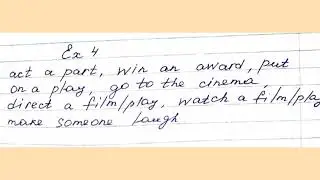 Ex 4
act a part, win an award, put
on a play, go to the cinema,
direct a film/play, watch a film/play
make someone laugh